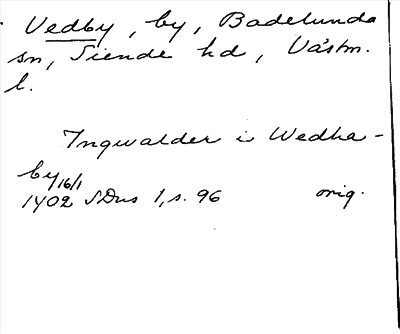 Vedby, by, Badelunda
sn, Siende hd, Västm.
l.
Ingwalder i Wedha-
by 16/1
1402 SDns 1, s. 96 orig.